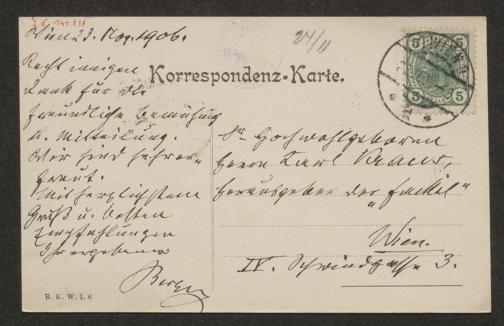 Wien 23. Nov. 1906.
Recht innigen
Dank für die
freundliche Bemühung
u. Mitteilung.
Wir sind sehr er-
freut.
Mit herzlichstem
Gruß u. besten
Empfehlungen
Ihr ergebener
Berger
24/11
Korrespondenz-Karte.
Sr. Hochwohlgeboren
Herrn Karl Kraus,
Herausgeber der „Fackel"
Wien.
IV. Schwindgasse 3.
B. K. W. I. 6
5
5
5
5
WIEN